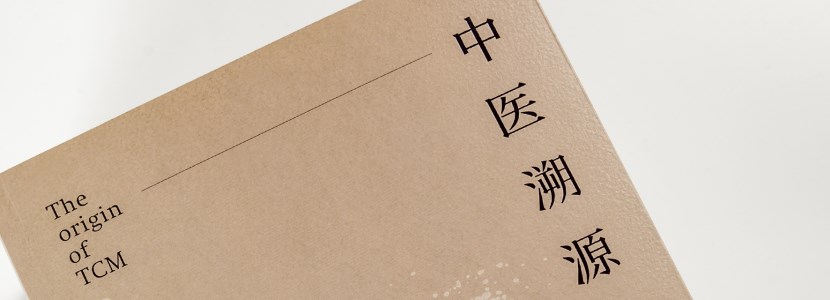 中医溯源
The
origin
of
TCM